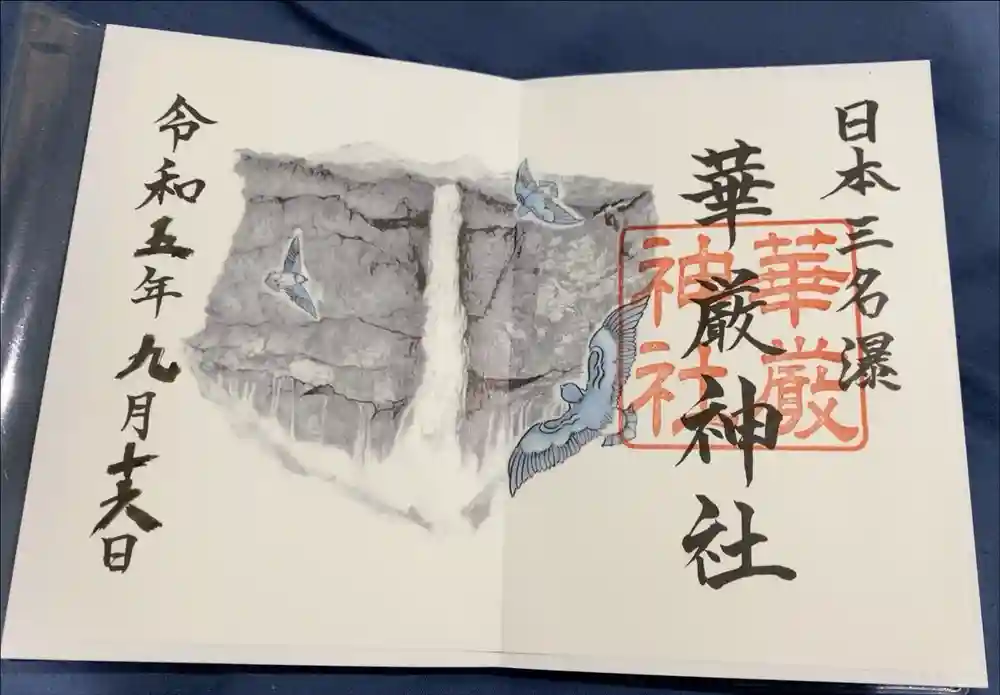 日本三名瀑
華厳神社
華厳
神社
令和五年九月十六日